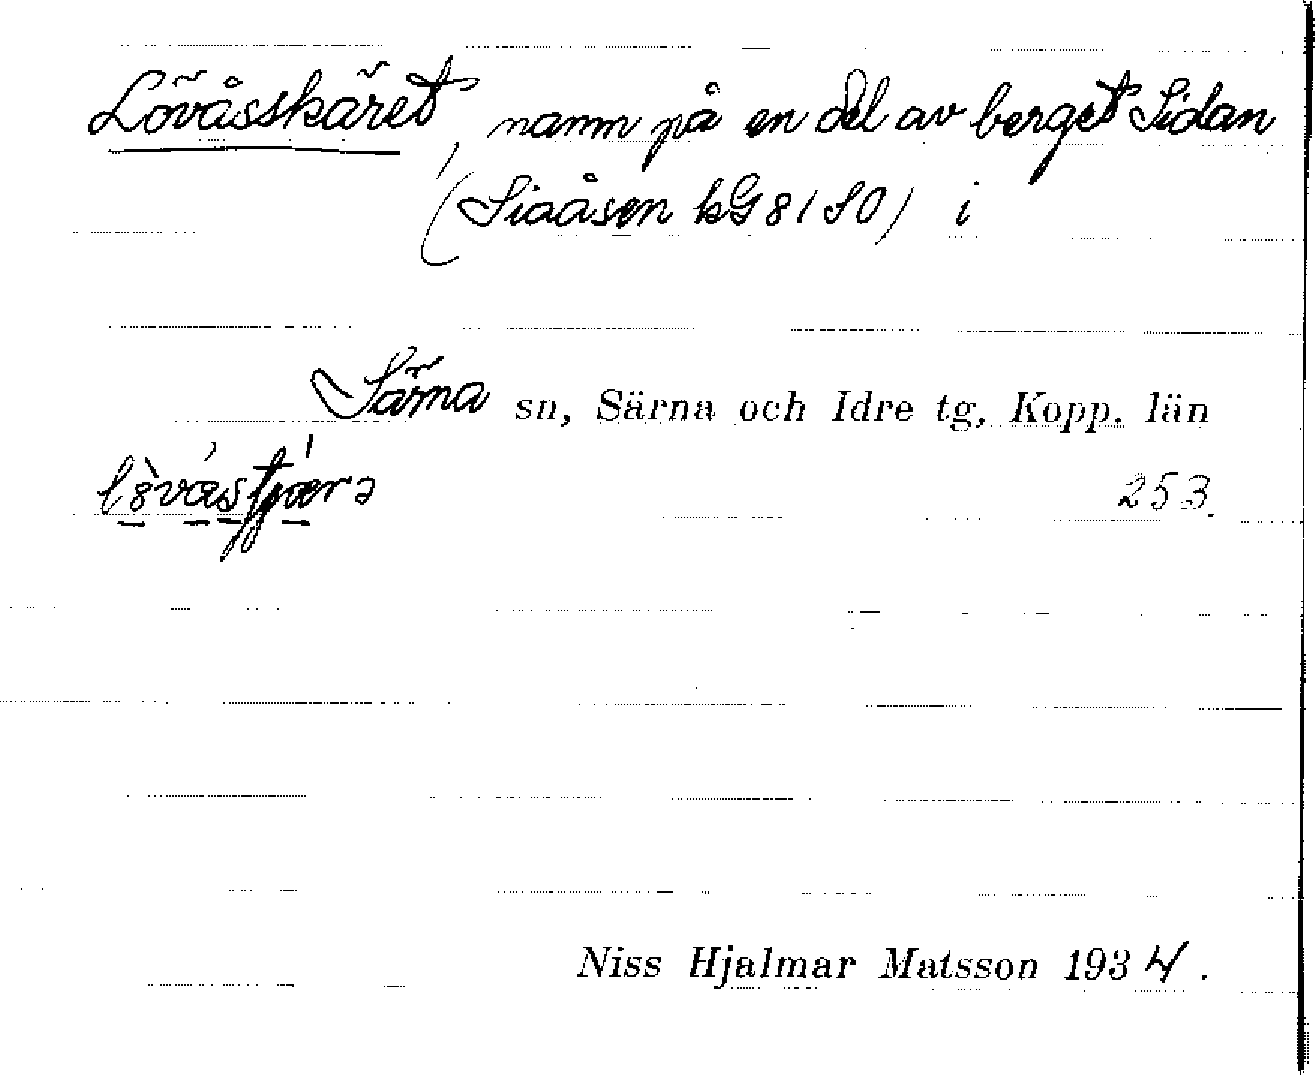 Lövåsskäret, namn på en del av berget Sidan
(Siaåsen kG 8/SO) i
Särna sn, Särna och Idre tg, Kopp. län
253.
Niss Hjalmar Matsson 1934.